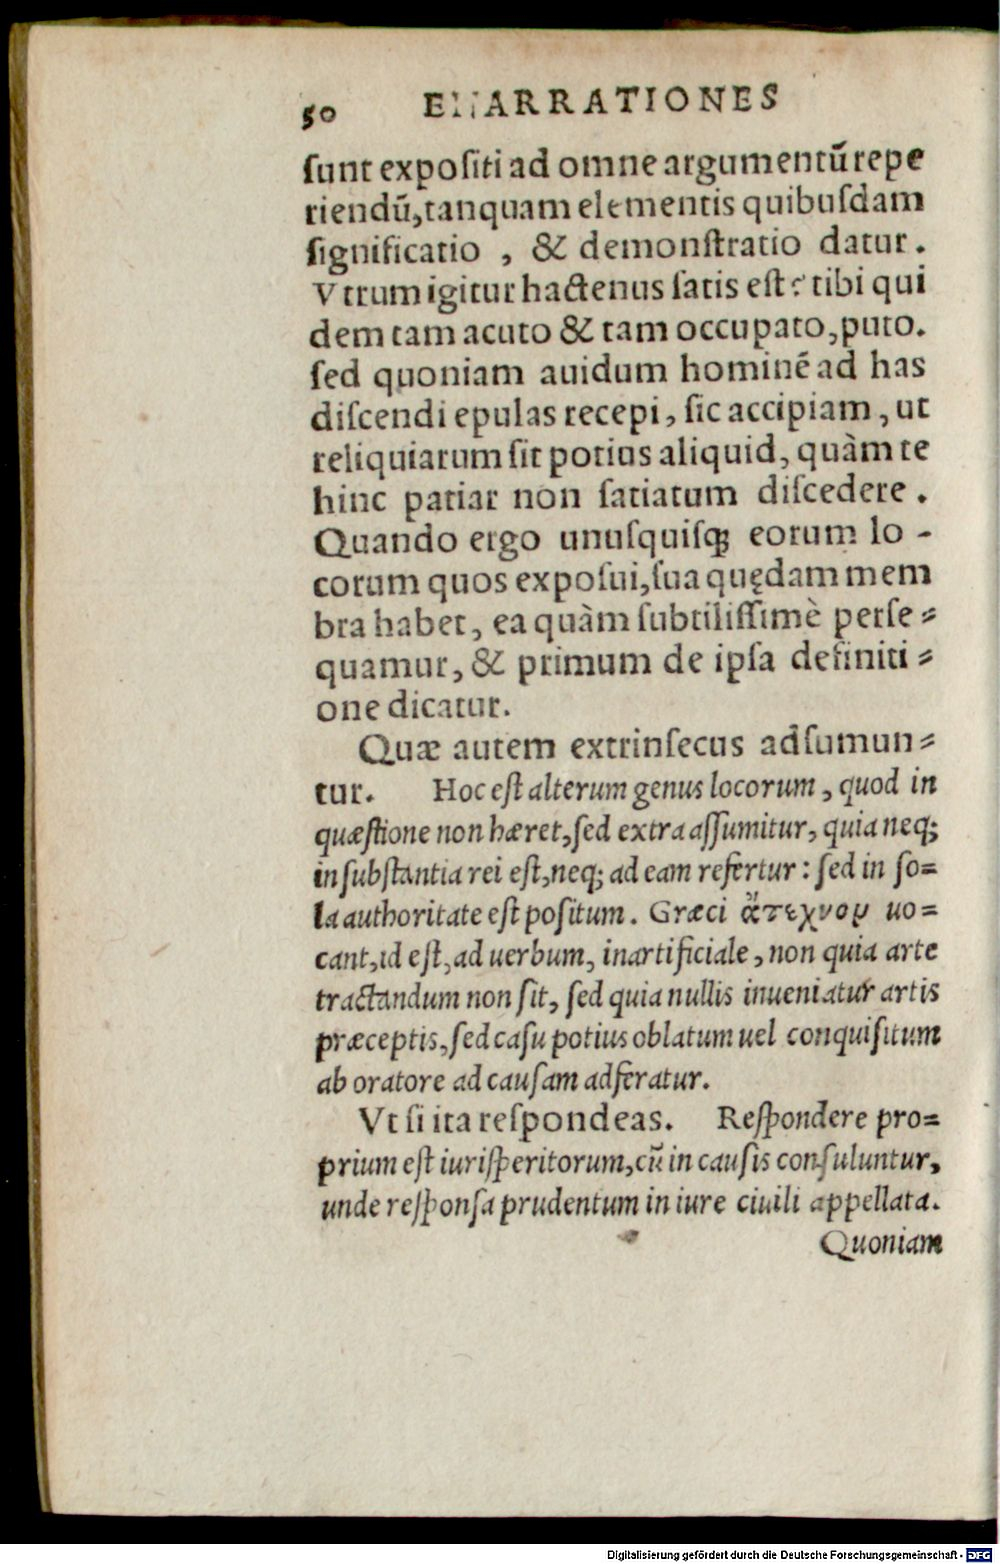 50 ENARRATIONES
ſunt expoſiti ad omne argumentũ repe
riendũ, tanquam elementis quibuſdam
ſignificatio , & demonſtratio datur.
Vtrum igitur hactenus ſatis eſt? tibi qui
dem tam acuto & tam occupato, puto.
ſed quoniam auidum hominẽ ad has
diſcendi epulas recepi, ſic accipiam, ut
reliquiarum ſit potius aliquid, quàm te
hinc patiar non ſatiatum diſcedere.
Quando ergo unuſquiſq; eorum lo-
corum quos expoſui, ſua quędam mem
bra habet, ea quàm ſubtiliſſimè perſe-
quamur, & primum de ipſa definiti-
one dicatur.
Quæ autem extrinſecus adſumun-
tur. Hoc eſt alterum genus locorum, quod in
quæſtione non hæret, ſed extra aſſumitur, quia neq;
in ſubſtantia rei eſt, neq; ad eam refertur: ſed in ſo-
la authoritate eſt poſitum. Græci ἄτεχνον uo-
cant, id eſt, ad uerbum, inartificiale, non quia arte
tractandum non ſit, ſed quia nullis inueniatur artis
præceptis, ſed caſu potius oblatum uel conquiſitum
ab oratore ad cauſam adferatur.
Vt ſi ita reſpondeas. Reſpondere pro-
prium eſt iuriſperitorum, cũ in cauſis conſuluntur,
unde reſponſa prudentum in iure ciuili appellata.
Quoniam
Digitalisierung gefördert durch die Deutsche Forschungsgemeinschaft - DFG